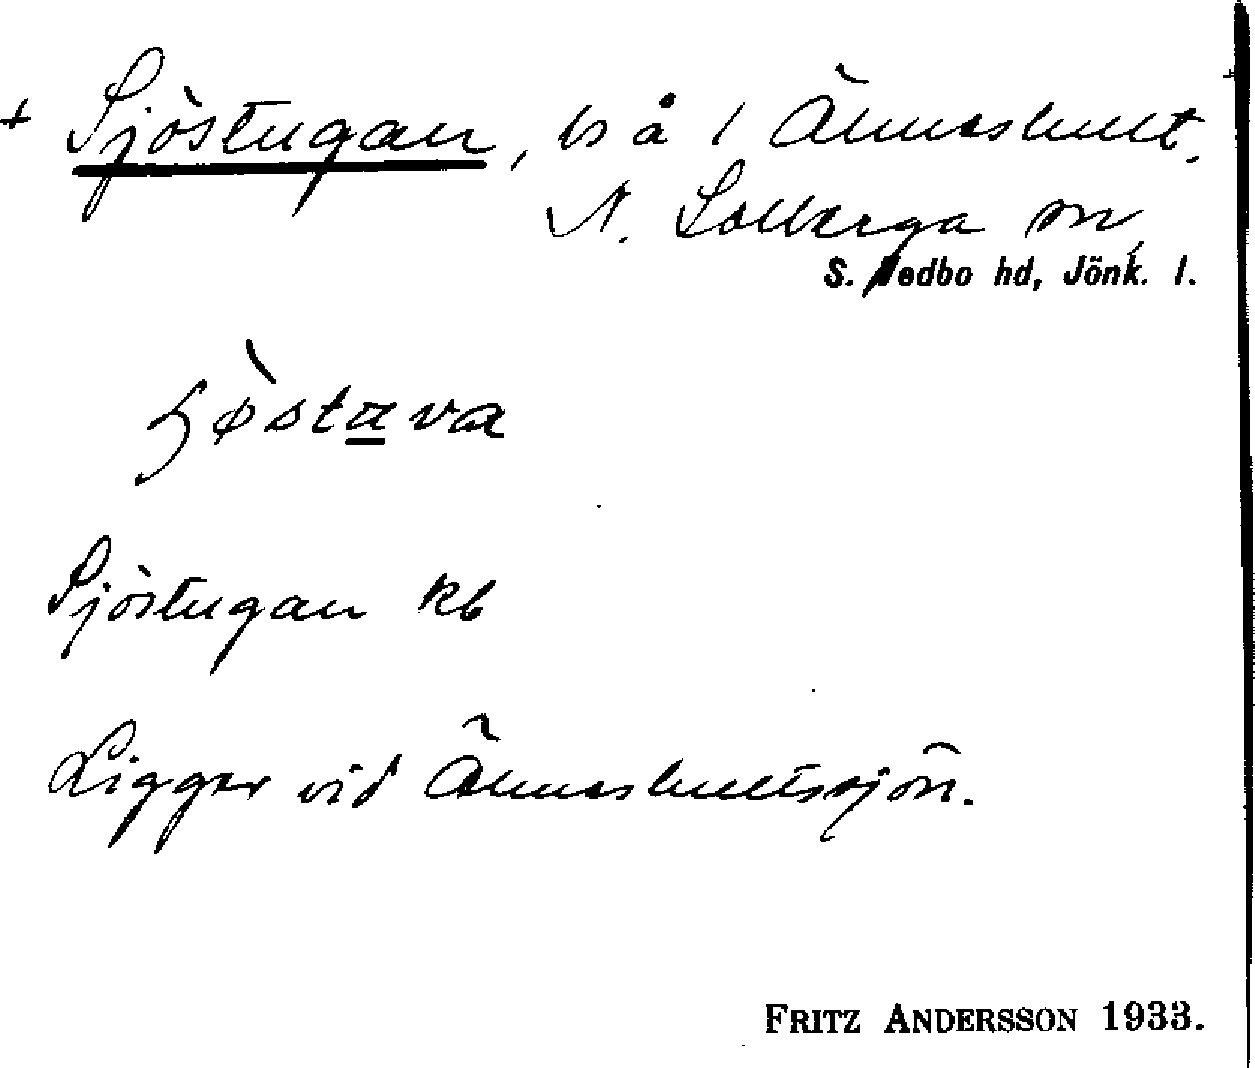 + Sjöstugan, bs å 1 Älmeshult,
N. Solberga sn,
S. Vedbo hd, Jönk. l.
Sjöstugan kb
Ligger vid Älmeshultssjön.
FRITZ ANDERSSON 1933.